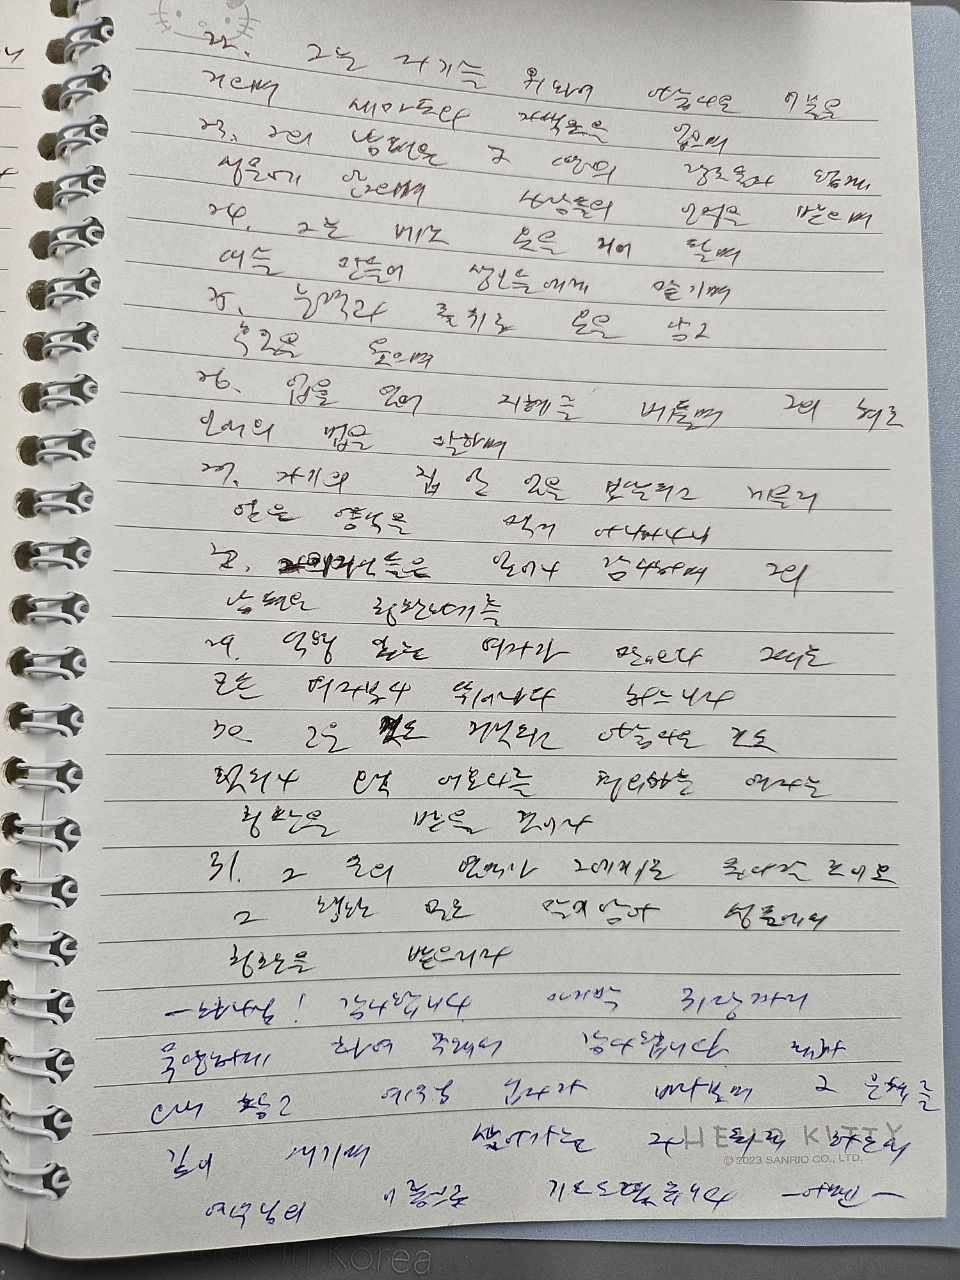 22. 그는 자기를 위하여 아름다운 이불을
지으며 세마포와 자색 옷을 입으며
23. 그의 남편은 그 땅의 장로들과 함께
성문에 앉으며 사람들의 인정을 받으며
24. 그는 베로 옷을 지어 팔며
띠를 만들어 상인들에게 맡기며
25. 능력과 존귀로 옷을 삼고
후일을 웃으며
26. 입을 열어 지혜를 베풀며 그의 혀로
인애의 법을 말하며
27. 자기의 집안 일을 보살피고 게을리
얻은 양식을 먹지 아니하나니
28. 그의 자식들은 일어나 감사하며 그의
남편은 칭찬하기를
29. 덕행 있는 여자가 많으나 그대는
모든 여자보다 뛰어나다 하느니라
30. 고운 것도 거짓되고 아름다운 것도
헛되나 오직 여호와를 경외하는 여자는
칭찬을 받을 것이라
31. 그 손의 열매가 그에게로 돌아갈 것이요
그 행한 일로 말미암아 성문에서
칭찬을 받으리라
감사합니다
하여 주셔서 감사합니다
예수님 바라보며 그 은혜를
깊이 새기며 살아가는 되게 하소서
예수님의 이름으로 기도드렸습니다 -아멘-
HELLO KITTY
© 2023 SANRIO CO., LTD.
in Korea